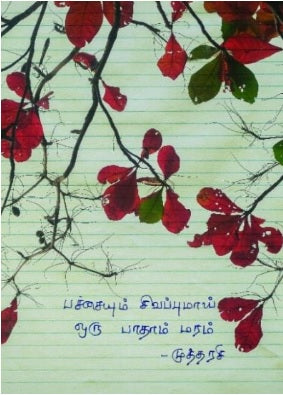 பச்சையும் சிவப்புமாய்
ஒரு பாதாம் மரம்
-முத்தரசி